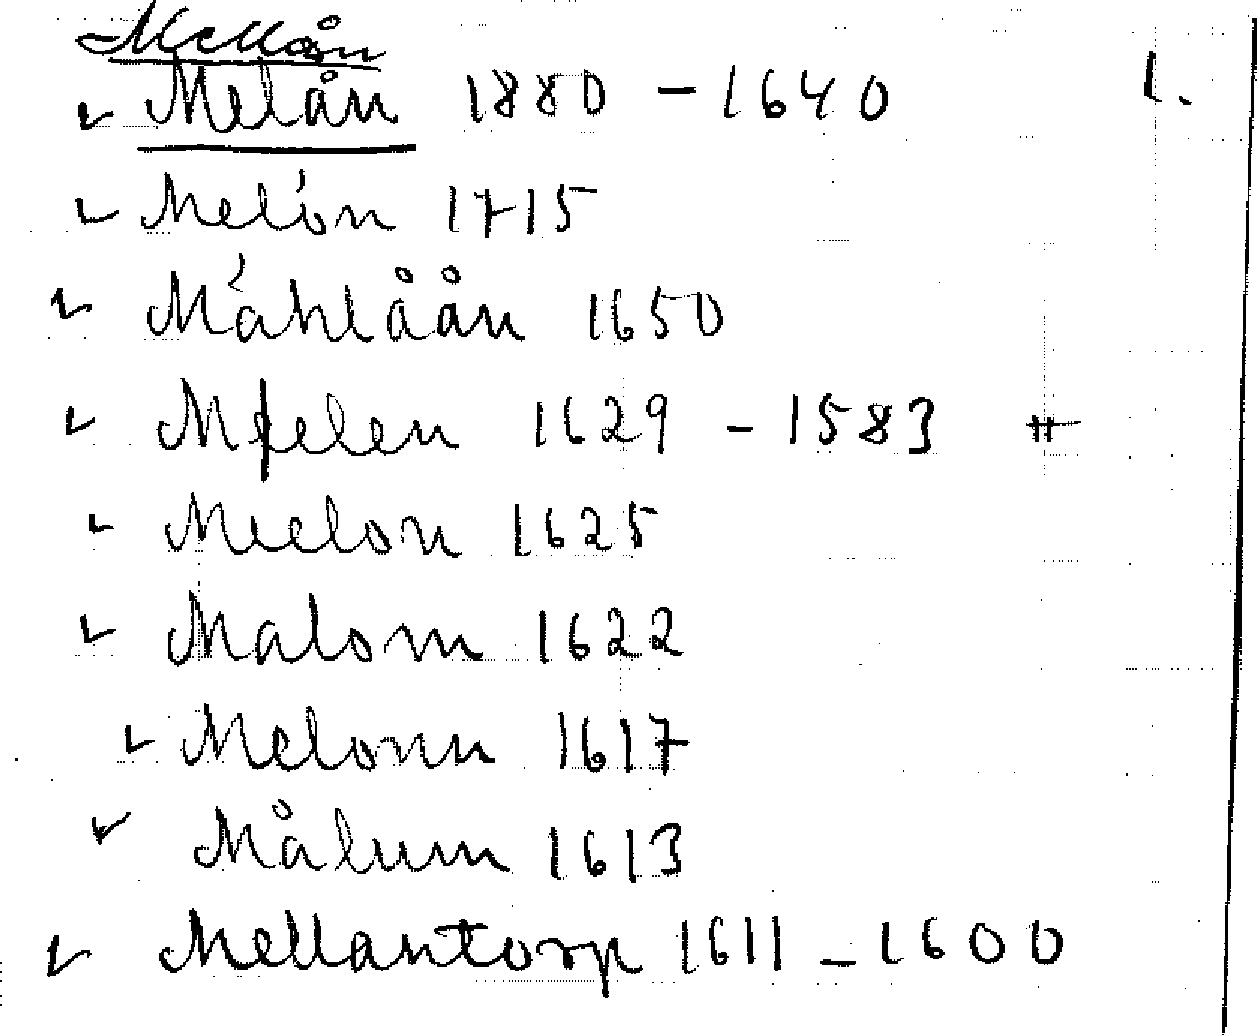 Mellån
Melån 1880 - 1640 1.
Melón 1715
Máhlåån 1650
Mfelen 1629 - 1583 #
Mielon 1625
Malom 1622
Melonn 1617
Målum 1613
Mellantorp 1611 - 1600